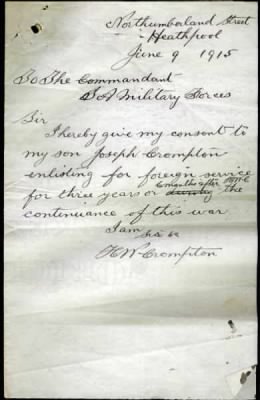 Northumberland Street
Heathpool
June 9 1915
To The Commandant
S A Military Forces
Sir
I hereby give my consent to
my son Joseph Crompton
enlisting for foreign service
6 months after
for three years or during the
continuance of this war
I am
H W Crompton